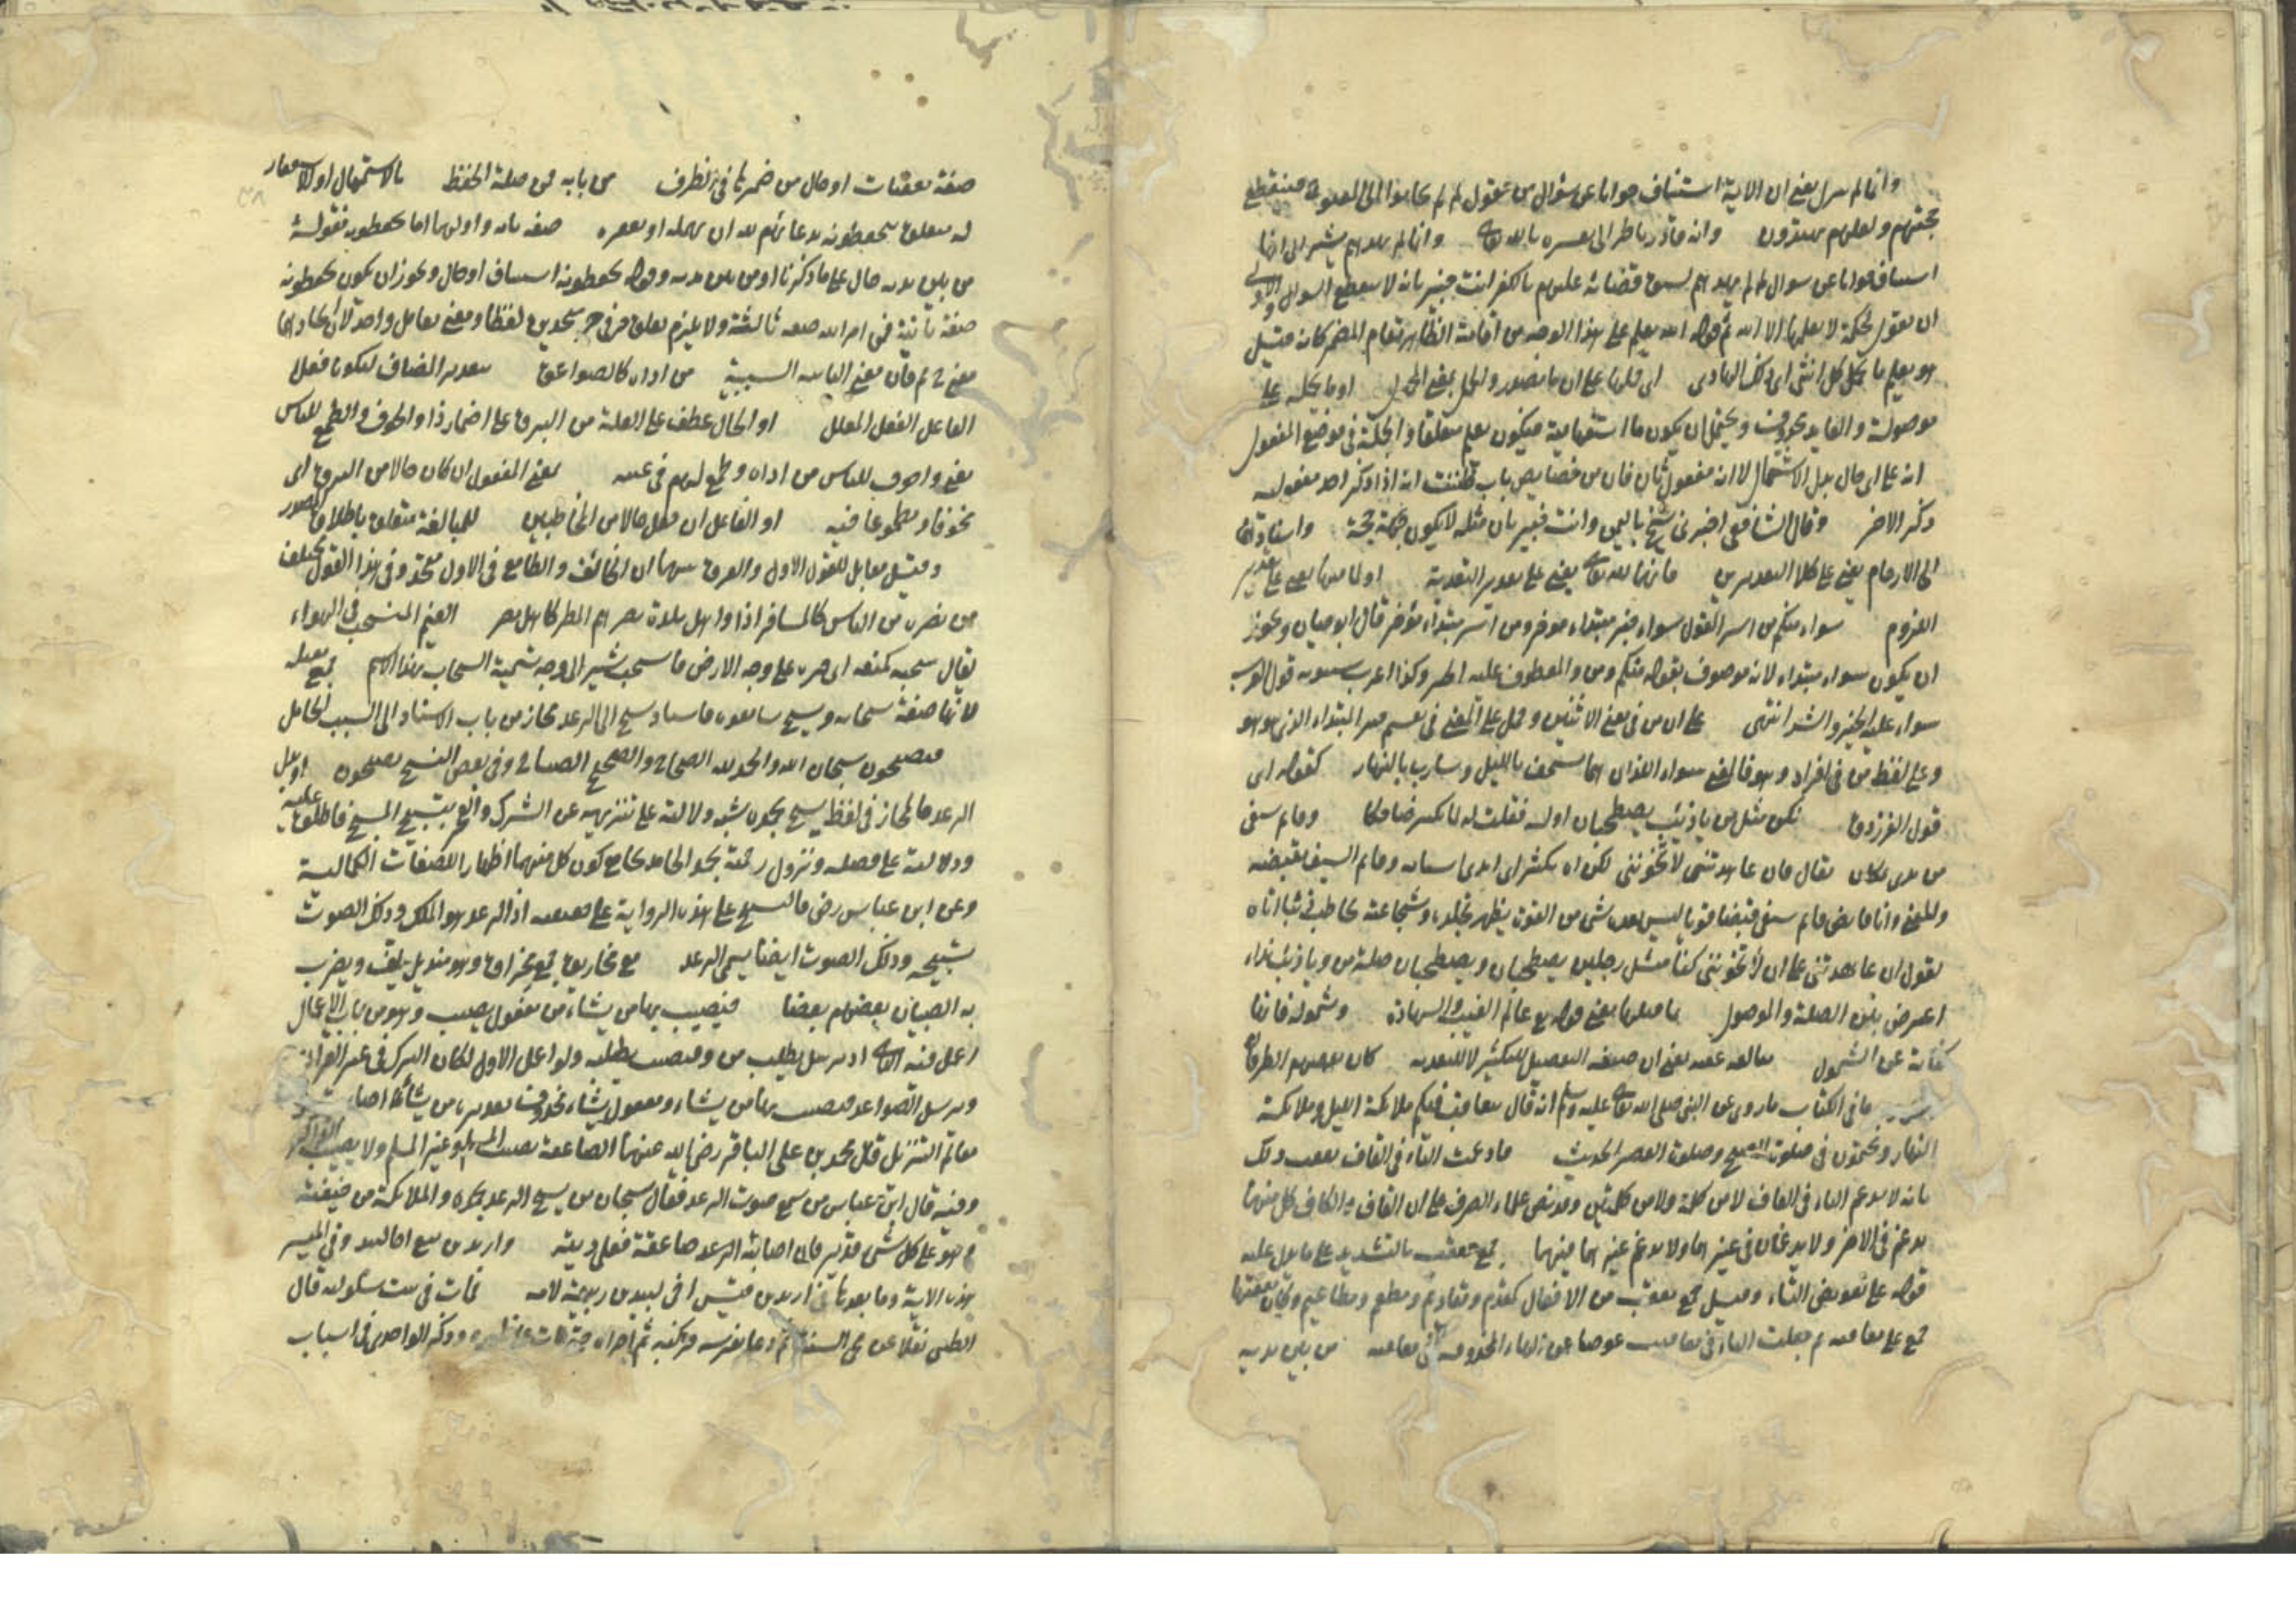 وانما لم ينزل يعني ان الاية استئناف جوابا عن سؤال من يقول لم لم يجابوا الى المقترح فينقطع
حجتهم ولعلهم يهتدون وانه قادر ناظر الى تفسيره بالله تعالى وانما لم يهدهم يشير الى انها
استيناف جوابا عن سوال لم لم يهدهم لسبق قضائه عليهم بالكفر انت خبير بانه لا ينقطع السوال الاولى
ان يقول لحكمة لا يعلمها الا الله ثم قوله الله يعلم على هذا الوجه من اقامة الظاهر مقام المضمر كانه قيل
هو يعلم ما تحمل كل انثى اى ذلك الهادى اى حملها على ان ما مصدرية والحمل بمعنى المحمول او ما تحمله على
موصولة والعايد محذوف ويحتمل ان يكون ما استفهامية فيكون يعلم معلقا والجملة فى موضع المفعول
انه على اى حال بدل الاشتمال لا انه مفعول ثان فان من خصايص باب ظننت انه اذا ذكر احد مفعوليه
ذكر الاخر وقال الشافعى اخبرنى شيخ باليمن وانت خبير بان مثله لا يكون حجة واسنادهما
الى الارحام يعنى على كلا التقديرين فانها لله تعالى يعنى على تقدير التعدية او لما فيها يعنى على تقدير
اللزوم سواء منكم من اسر القول سواء خبر مبتداء موخر ومن اسر مبتداء مؤخر قال ابو حيان ويجوز
ان يكون سواء مبتداء لانه موصوف بقوله منكم ومن والمعطوف عليه الخبر وكذا اعرب سيبويه قول العرب
سواء عليه الخير والشر انتهى على ان من فى معنى الاثنين وحمل على المعنى فى تقسيم خبر المبتداء الذى هو هو
وعلى لفظ من فى افراد وهو فالمعنى سواء اللذان هما مستخف بالليل وسارب بالنهار كقوله اى
قول الفرزدق نكن مثل من يا ذئب يصطحبان اوله فقلت له لما تكشر ضاحكا وقايم سيفى
من يدى بمكان تعال فان عاهدتنى لا تخوننى لكن اه تكشر اى ابدى اسنانه وقايم السيف مقبضه
والمعنى وانا قابض قايم سيفى قبضا قويا ليس بعده شئ من القوة يظهر تجلده وشجاعته يخاطب ذئبا اتاه
يقول ان عاهدتنى على ان لا تخوننى كنا مثل رجلين يصطحبان ويصطحبان صلة من ويا ذئب نداء
اعترض بين الصلة والموصول ما قبلها يعنى قوله تع عالم الغيب والشهادة وشموله فانها
كناية عن الشمول مبالغه عقبه يعنى ان صيغه التفعيل للتكثير لا للتعديه كان بعضهم الطرفان
ما فى الكتاب ما روى عن النبى صلى الله تعالى عليه وسلم انه قال يتعاقب فيكم ملائكة الليل وملائكة
النهار ويجتمعون فى صلوة الصبح وصلوة العصر الحديث فادغمت التاء فى القاف تعقب ذلك
بانه لا يدغم التاء فى القاف لا من كلمة ولا من كلمتين وقد نص علماء الصرف على ان القاف والكاف كل منهما
يدغم فى الاخر ولا يدغمان فى غيرهما ولا يدغم غيرهما فيهما جمع معقب بالتشديد على ما يدل عليه
قوله على تعويض التاء وقيل جمع معقب من الافعال كمقدم ومقاديم ومطعم ومطاعيم وكان معقبا
جمع على معاقبه ثم جعلت الياء فى معاقيب عوضا عن الهاء المحذوفة فى معاقبه من بين يديه
صفة معقبات او حال من ضمرها فى الظرف من بابه فمن صلة الحفظ بالاستمهال او الاستغفار
له متعلق بيحفظونه بدعائهم لله ان يمهله او يغفره صفه ثانيه واولهما اما يحفظونه فقوله
من بين يديه حال على ما ذكرنا او من بين يديه وقوله يحفظونه استيناف او حال ويجوز ان يكون يحفظونه
صفة ثانية فمن امر الله صفه ثالثة ولا يلزم تعلق حرفى جر متحدين لفظا ومعنى بعامل واحد لان اتحادهما
معنى ثم فان معنى الثانيه السببية من اذاه كالصواعق بتقدير المضاف ليكونا فعلا
الفاعل الفعل المعلل او الحال عطف على العلة من البرق على اضمار ذا والخوف والطمع للناس
يعنى والخوف للناس من اذاه وطمع لهم فى غيثه بمعنى المفعول ان كان حالا من البرق اى
مخوفا ومطموعا فيه او الفاعل ان جعل حالا من المخاطبين للمبالغة متعلق باطلاق المصدر
وقيل مقابل للقول الاول والفرق بينهما ان الخائف والطامع فى الاول متحد وفى هذا القول مختلف
من يضره من الناس كالمسافر اذا واهل بلدة يضرهم المطر كاهل مصر الغيم المنسحب فى الهواء
يقال سحبه كمنعه اى جره على وجه الارض فانسحب يشير الى وجه تسمية السحاب بهذا الاسم جمع ثقيله
لانها صفة سحابه ويسبح سامعوه فاسناد يسبح الى الرعد مجاز من باب الاسناد الى السبب الحامل
فيصيحون سبحان الله والحمد لله الصحاح والصحيح الصياح وفى بعض النسخ يضجون او يدل
الرعد فالمجاز فى لفظ يسبح بحمده شبه دلالته على تنزيهه عن الشرك والعجز بتسبيح المسبح فاطلق عليه
ودلالته على فضله ونزول رحمته بحمد الحامد بجامع كون كل منهما اظهار للصفات الكمالية
وعن ابن عباس رض فالتسبيح على هذه الرواية على حقيقته اذ الرعد هو الملك وذلك الصوت
تسبيحه وذلك الصوت ايضا يسمى الرعد مع مخاريق جمع مخراق وهو منديل يلف ويضرب
به الصبيان بعضهم بعضا فيصيب بها من يشاء من مفعول يصيب وهو من باب الاعمال
اعمل فيه الثانى اذ يرسل يطلب من وفيصيب يطلبه ولو اعمل الاول لكان التركيب فى غير القران
ويرسل الصواعق فيصيب بها من يشاء ومفعول يشاء محذوف تقديره من يشاء اصابته
معالم التنزيل قال محمد بن على الباقر رضى الله عنهما الصاعقة تصيب المسلم وغير المسلم ولا يصيب الذاكر
وفيه قال ابن عباس من سمع صوت الرعد فقال سبحان من يسبح الرعد بحمده والملائكة من خيفته
وهو على كل شئ قدير فان اصابته الرعد صاعقة فعلى ديته واربد بن ربيعه اخا لبيد وفى التيسير
هذه الاية وما بعدها فى اربد بن قيس اخى لبيد بن ربيعة لامه فمات فى بيت سلوليه قال
الطيبى نقلا عن محى السنة ثم دعا بفرسه فركبه ثم اجراه حتى مات على ظهره وذكر الواحدى فى اسباب